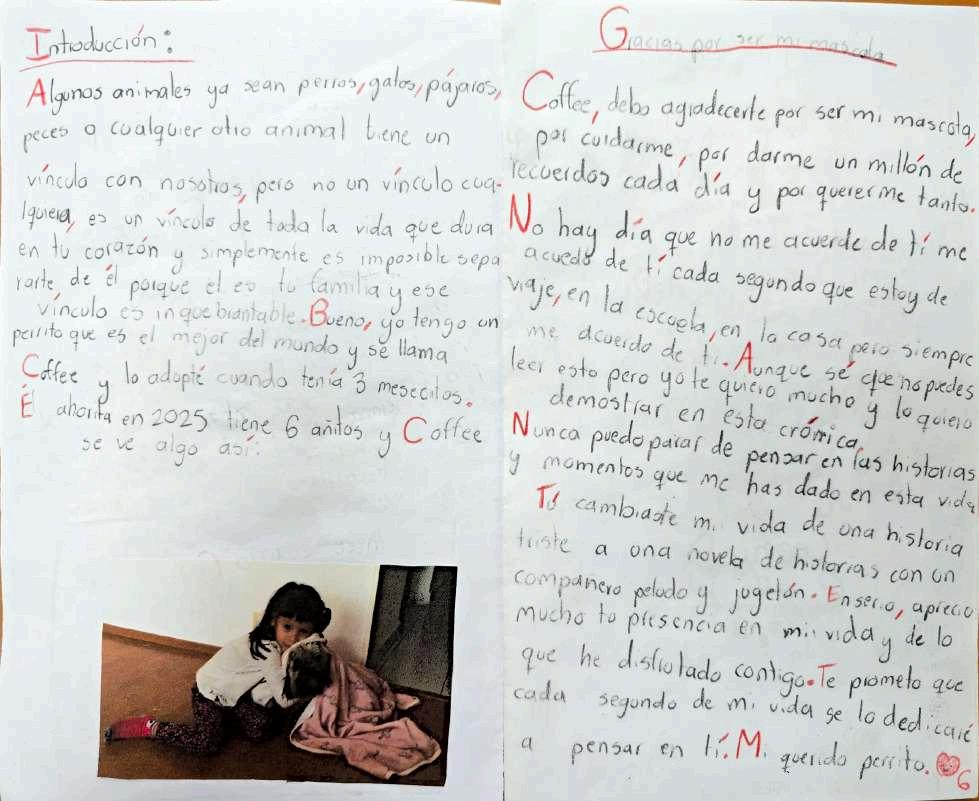 Introducción:
Algunos animales ya sean perros, gatos, pájaros,
peces o cualquier otro animal tiene un
vínculo con nosotros, pero no un vínculo cua-
lquiera, es un vínculo de toda la vida que dura
en tu corazón y simplemente es imposible sepa
rarte de él porque el es tu familia y ese
vínculo es inquebrantable. Bueno, yo tengo un
perrito que es el mejor del mundo y se llama
Coffee y lo adopté cuando tenía 3 mesecitos.
Él ahorita en 2025 tiene 6 añitos y Coffee
se ve algo así:
Gracias por ser mi mascota
Coffee, debo agradecerte por ser mi mascota,
por cuidarme, por darme un millón de
recuerdos cada día y por quererme tanto.
No hay día que no me acuerde de tí me
acuedo de tí cada segundo que estoy de
viaje, en la escuela, en la casa pero siempre
me acuerdo de ti. Aunque sé que no puedes
leer esto pero yo te quiero mucho y lo quiero
demostrar en esta crónica.
Nunca puedo parar de pensar en las historias
y momentos que me has dado en esta vida
Tú cambiaste mi vida de una historia
triste a una novela de historias con un
compañero peludo y jugetón. Enserio, aprecio
mucho tu presencia en mi vida y de lo
que he disfrutado contigo. Te prometo que
cada segundo de mi vida se lo dedicaré
a pensar en tí. Mi querido perrito.
6